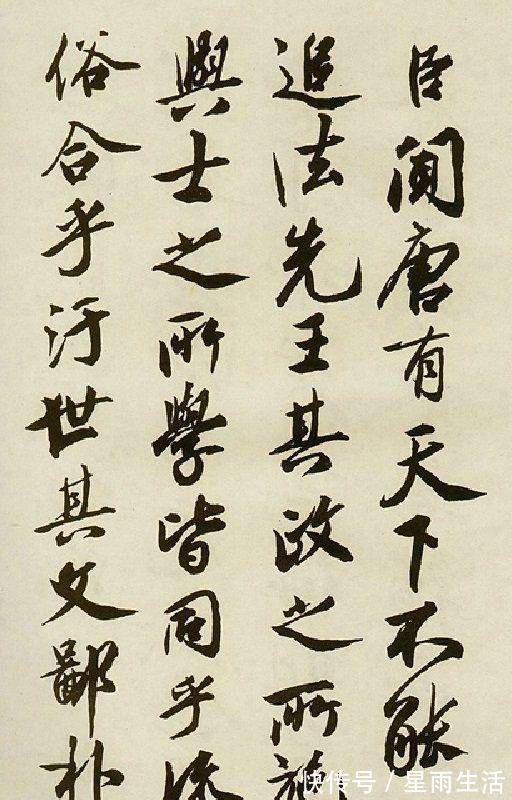 臣闻唐有天下不能
追法先王其政之所施
興士之所學皆同乎流
俗合乎汙世其文鄙朴
快传号/星雨生活